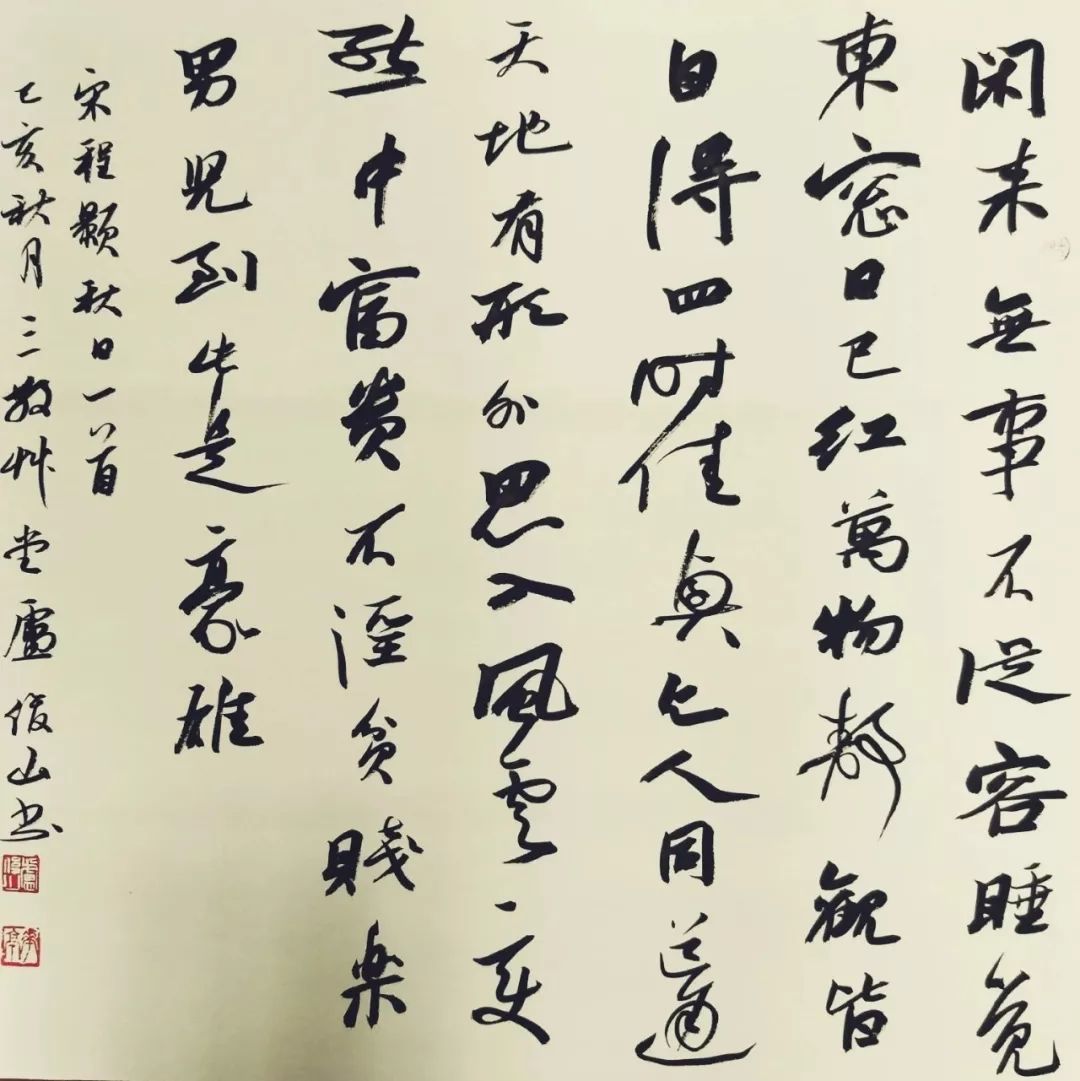 闲来無事不従容睡覚
東窓日已红萬物静觀皆
自得四时佳興与人同道通
天地有形外思入風雲変
態中富贵不淫贫賤楽
男児到此是豪雄
宋程颢秋日一首
己亥秋月三艸堂盧俊山书